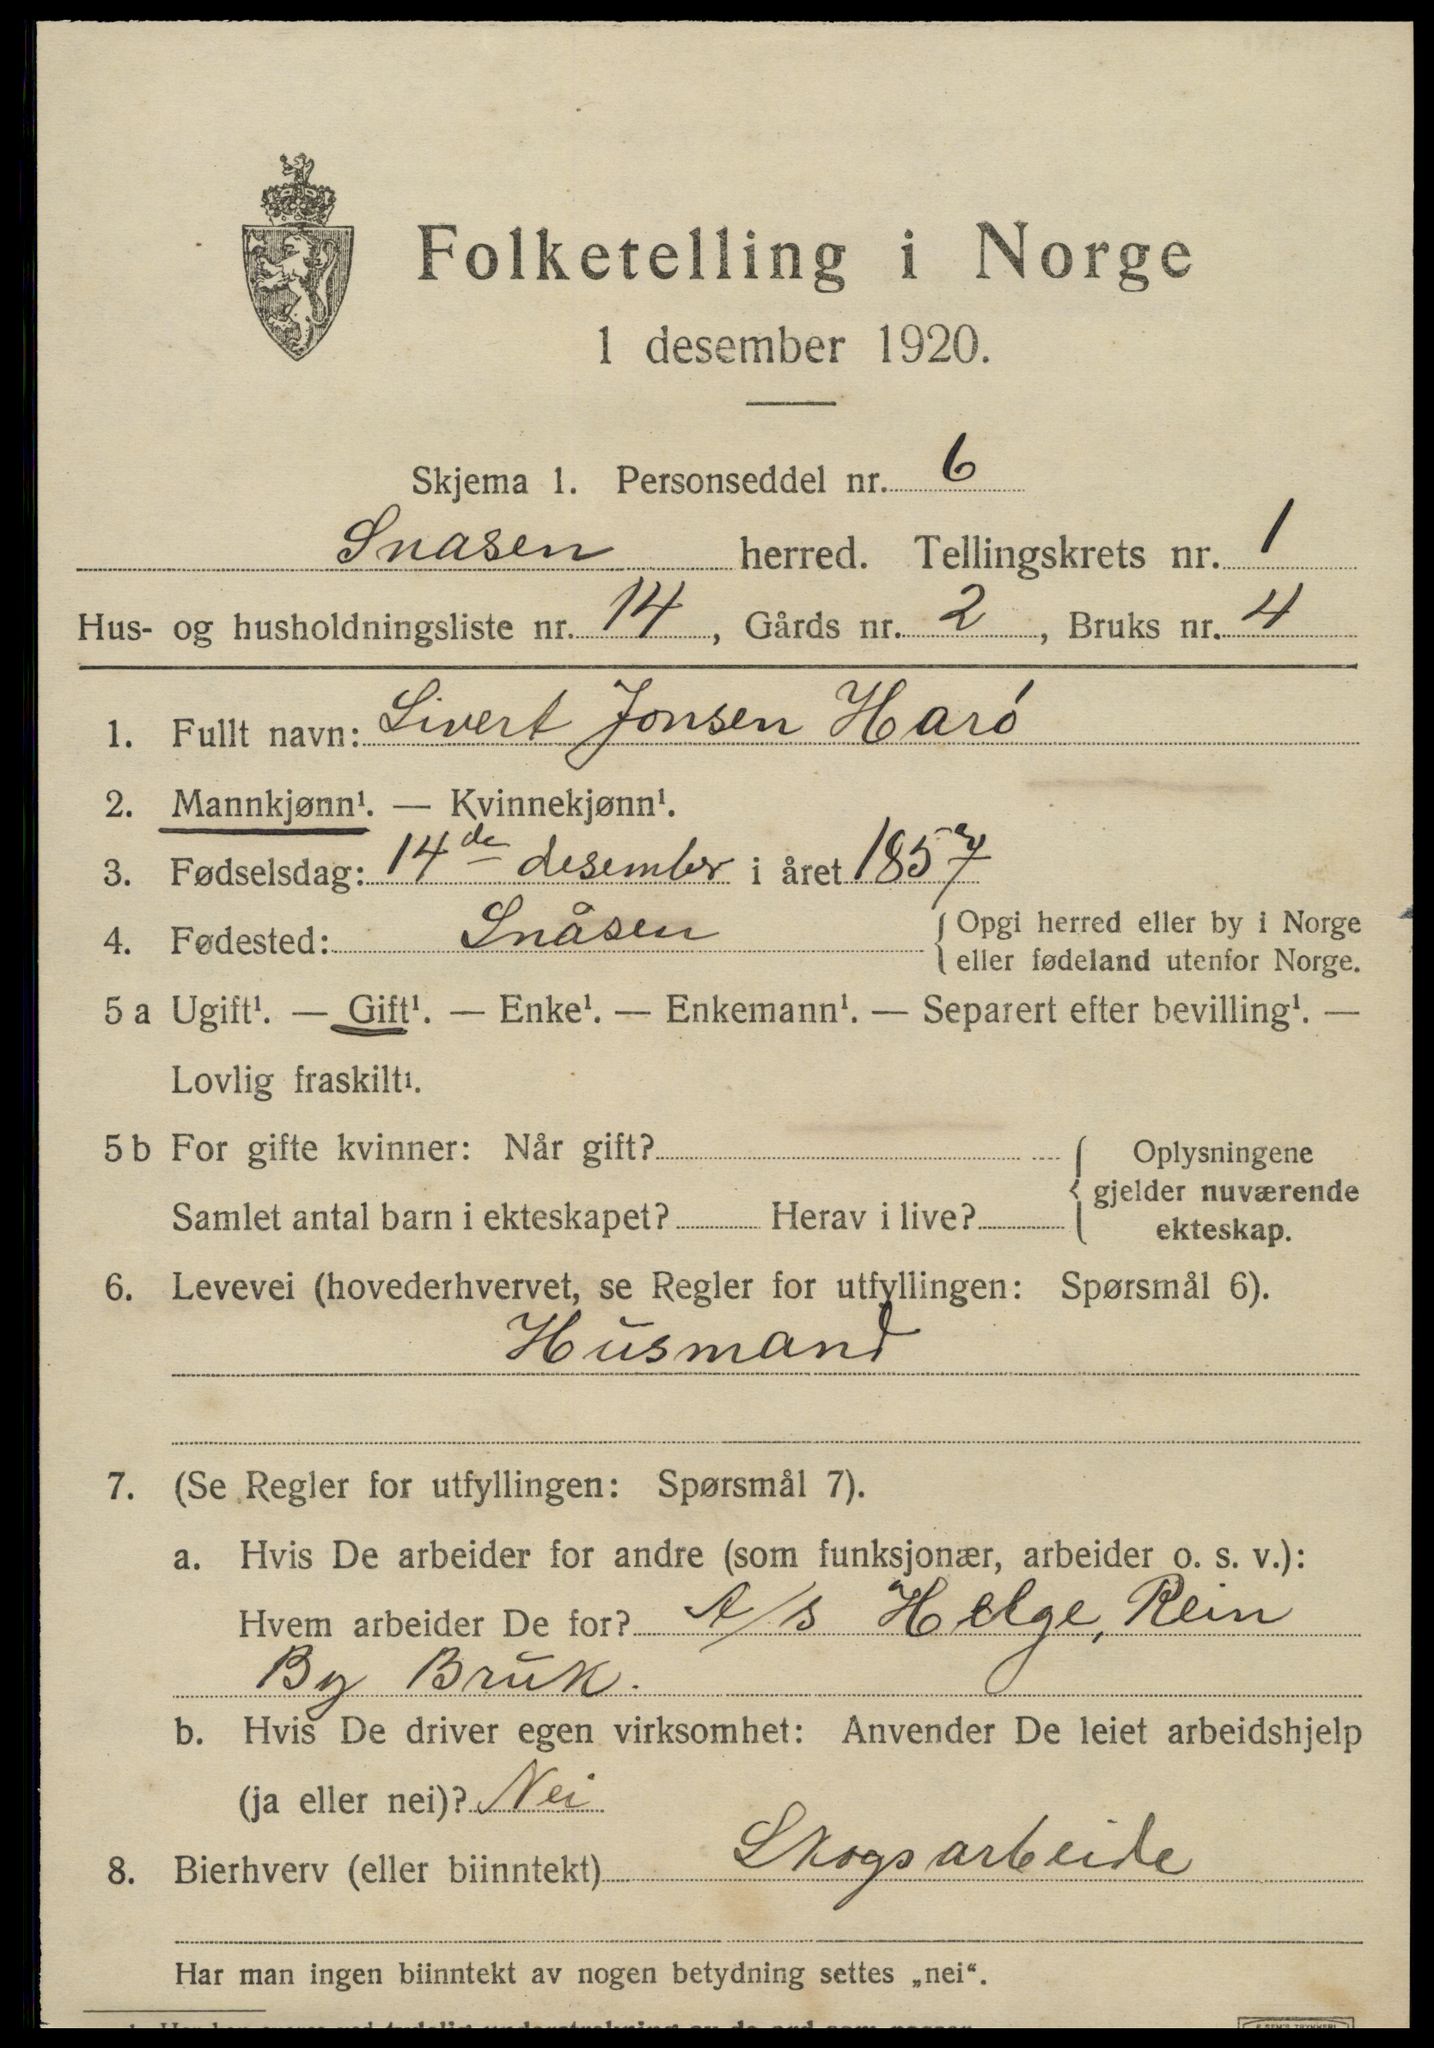 Folketelling i Norge
1 desember 1920.
Skjema 1. Personseddel nr. 6
Snasen herred. Tellingskrets nr. 1
Hus- og husholdningsliste nr. 14, Gårds nr. 2, Bruks nr. 4
1. Fullt navn: Sivert Jonsen Haró
2. Mannkjønn¹. — Kvinnekjønn¹.
3. Fødselsdag: 14de desember i året 1857
4. Fødested: Snåsen { Opgi herred eller by i Norge
eller fødeland utenfor Norge.
5 a Ugift¹. — Gift¹. — Enke¹. — Enkemann¹. — Separert efter bevilling¹. —
Lovlig fraskilt¹.
5 b For gifte kvinner: Når gift? { Oplysningene
gjelder nuværende
Samlet antal barn i ekteskapet? Herav i live? ekteskap.
6. Levevei (hovederhvervet, se Regler for utfyllingen: Spørsmål 6).
Husmand
7. (Se Regler for utfyllingen: Spørsmål 7).
a. Hvis De arbeider for andre (som funksjonær, arbeider o. s. v.):
Hvem arbeider De for? A/s Helge, Rein
By Bruk.
b. Hvis De driver egen virksomhet: Anvender De leiet arbeidshjelp
(ja eller nei)? Nei
8. Bierhverv (eller biinntekt) Skogsarbeide
Har man ingen biinntekt av nogen betydning settes „nei“.